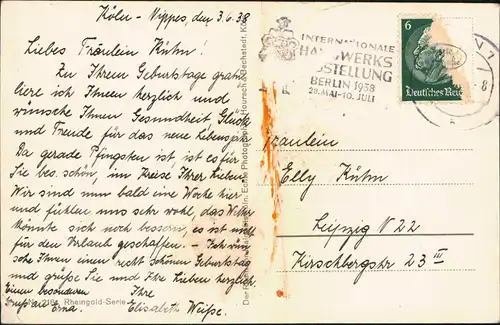 Köln-Nippes, den 3.6.38
Liebes Fräulein Kühn!
Zu Ihrem Geburtstage gratu-
liere ich Ihnen herzlich und
wünsche Ihnen Gesundheit, Glück
und Freude für das neue Lebensjahr.
Da gerade Pfingsten ist, ist es für
Sie bes. schön, im Kreise Ihrer Lieben.
Wir sind nun bald eine Woche hier
und fühlen uns sehr wohl, das Wetter
könnte sich noch bessern, es ist
für den Urlaub geschaffen. - Ich wün-
sche Ihnen einen recht schönen Geburtstag
und grüße Sie und Ihre Lieben herzlich
Einen besonderen Ihre
Gruß an Erna. Elisabeth Weiße.
Rheingold-Serie
INTERNATIONALE
HANDWERKS
AUSSTELLUNG
BERLIN 1938
28. MAI-10. JULI
6
Deutsches Reich
8
Fräulein
Elly Kühn
Leipzig N 22
Kirschbergstr 23 III